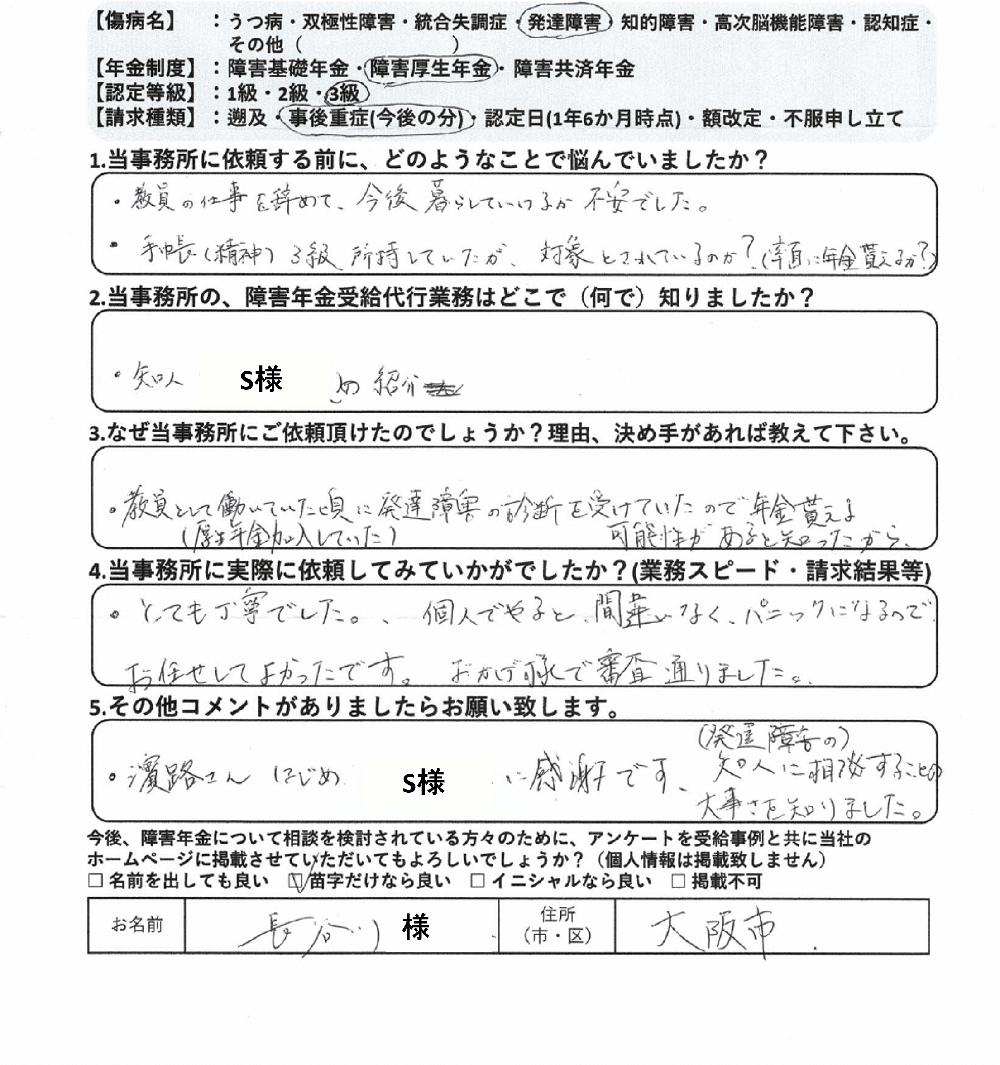 【傷病名】：うつ病・双極性障害・統合失調症・発達障害・知的障害・高次脳機能障害・認知症・
その他（　　　　　　　　）
【年金制度】：障害基礎年金・障害厚生年金・障害共済年金
【認定等級】：1級・2級・3級
【請求種類】：遡及・事後重症(今後の分)・認定日(1年6か月時点)・額改定・不服申し立て
1.当事務所に依頼する前に、どのようなことで悩んでいましたか？
・教員の仕事を辞めて、今後暮らしていけるか不安でした。
・手帳(精神)3級所持していたが、対象とされているのか？(率直に年金貰えるか？)
2.当事務所の、障害年金受給代行業務はどこで（何で）知りましたか？
・知人 S様 の紹介
3.なぜ当事務所にご依頼頂けたのでしょうか？理由、決め手があれば教えて下さい。
・教員として働いていた頃に発達障害の診断を受けていたので年金貰える
(厚生年金加入していた) 可能性があると知ったから、
4.当事務所に実際に依頼してみていかがでしたか？(業務スピード・請求結果等)
・とても丁寧でした。、個人でやると、間違いなく、パニックになるので
お任せしてよかったです。おかげ様で審査通りました。
5.その他コメントがありましたらお願い致します。
・濱路さんはじめ S様 に感謝です、
(発達障害の)
知人に相談することの
大事さを知りました。
今後、障害年金について相談を検討されている方々のために、アンケートを受給事例と共に当社の
ホームページに掲載させていただいてもよろしいでしょうか？（個人情報は掲載致しません）
□ 名前を出しても良い ☑ 苗字だけなら良い □ イニシャルなら良い □ 掲載不可
お名前 長谷川 様 住所 大阪市
（市・区）